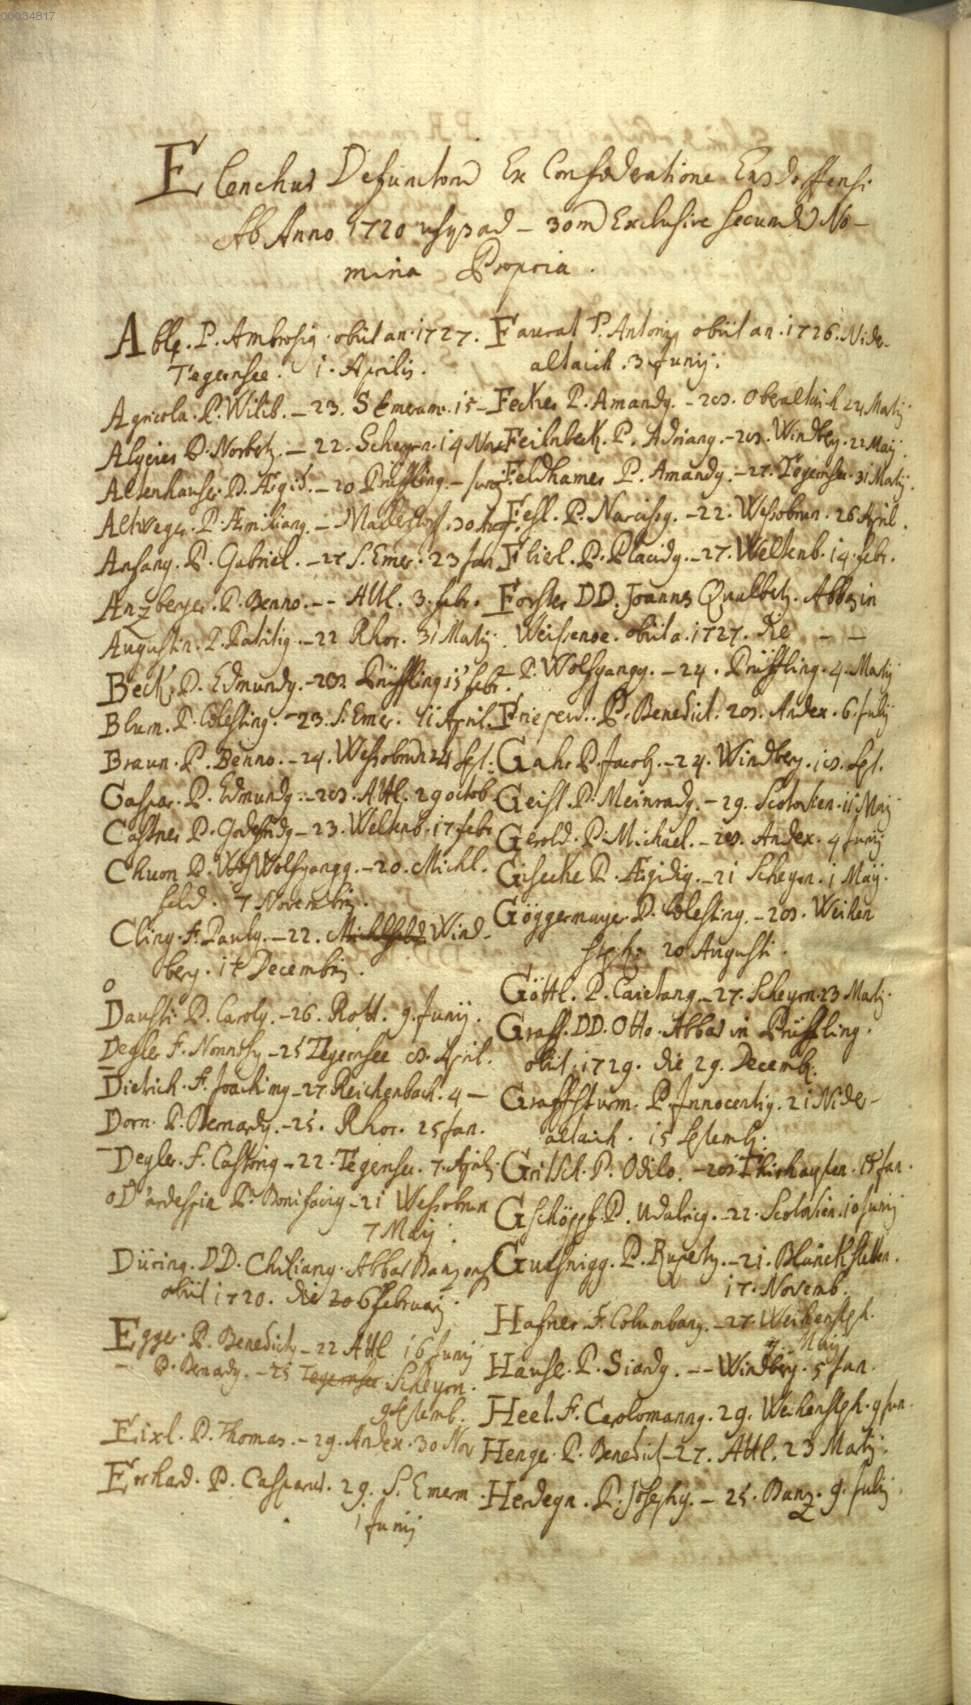 00034817
Elenchus Defunctorum Ex Confoederatione Ensdorffensi
Ab Anno 1720 usque ad - 30m Exclusive secundum No-
mina Propria.
Able. P. Ambrosig. obiit an. 1727.
Tegernsee. 1. Aprilis.
Agricola. P. Wilib. - 23. S. Emeram. 15 -
Algeier P. Norbertg. - 22. Scheyrn. 14 Nov.
Altenhauser. P. Ægid. - 20 Prüffling. - Junij
Altweger. P. Æmiliang. - Mallerstorf. 30
Anfang. P. Gabriel. - 27 S. Emer. 23 Jan.
Anzberger. P. Benno. - - Attl. 3. febr.
Augustin. P. Patritig. - 22 Rhor. 31 Martij.
Beck. P. Edmundg. - 28. Prüffling 15 febr.
Blum. P. Coelesting. - 23. S. Emer. 11 April.
Braun. P. Benno. - 24. Wessobrun 24 Sept.
Caspar. P. Edmundg. - 28. Attl. 29 octob.
Castner P. Godefridg - 23. Weltenb. 17 febr.
Chuon P. Wolfgangg. - 20. Michl.
feld. 7 Novembris.
Cling. F. Paulg. - 22. Wind-
berg. 17 Decembris.
Daufti. P. Carolg. - 26. Rott. 9. Junij.
Degler F. Nonnosg - 25 Tegernsee 8. April.
Dietrich. F. Joachimg - 27. Reichenbach. 4 -
Dorn. P. Bernardg. - 25. Rhor. 25 Jan.
Degler. F. Castorig - 22. Tegernsee. 7. Aprilis.
D'ardespin P. Bonifacig - 21 Wessobrun
7 Maij.
Düring. DD. Chiliang. Abbas Banzens
obiit 1720. die 20 februarij.
Egger. P. Benedictg - 22 Attl 16 Junij
- P. Bernardg. - 25 Tegernsee Scheyrn.
9 Septemb.
Eixl. P. Thomas. - 29. Andex. 30 Nov
Erhard. P. Casparus. 29. S. Emerm.
1 Junij
Faurat P. Antonig obiit an. 1726. Nider-
altaich. 3. Junij.
Fecker P. Amandg. - 28. Oberaltaich 24 Martij
Feilnbeck. P. Adriang. - 28. Windberg. 22 Maij.
Feldhamer P. Amandg. - 27. Tegernsee. 31 Martij.
Fesl. P. Narcissg. - 22. Wessobrun. 26 April.
Flierl. P. Placidg. - 27. Weltenb. 14. febr.
Forster DD. Joannes Abbas in
Weissenoe. obiit a. 1727. die - -
P. Wolfgangg. - 24. Prüffling. 4. Martij
P. Benedict. 28. Andex. 6. Julij
Gahr P. Jacob. - 24. Windberg. 18. Sept.
Geist. P. Meinradg. - 29. Scotorsien. 11 Maij
Gerold. P. Michael. - 28. Andex. 4 Junij
Gisecke P. Ægidig. - 21 Scheyrn. 1 Maij.
Göggermayr P. Coelesting. - 28. Weihen
steph. 20 Augusti.
Göttl. P. Caietang. - 27. Scheyrn. 23 Martij.
Graff. DD. Otto. Abbas in Prüffling.
obiit. 1729. die 29. Decemb.
Graffsturm. P. Innocentig. 21 Nider-
altaich. 15 Septemb.
Gritsch. P. Odilo. - 28 Thierhaupten. 15 Jan.
Gschöpf. P. Udalricg. - 22. Scotorsien. 10 Junij
Guethnigg. P. Rupertg. - 21. Blanckstetten.
17. Novemb.
Hafner F. Columbang. - 27. Weihensteph.
7. Maij
Hauser. P. Siardg. - - Windberg. 5 Jan.
Heel. F. Carlomanng. 29. Weihensteph. 9 Jun.
Henge. P. Benedict - 27. Attl. 23 Martij.
Herdegn. P. Josephg. - 25. Banz. 9. Julij.